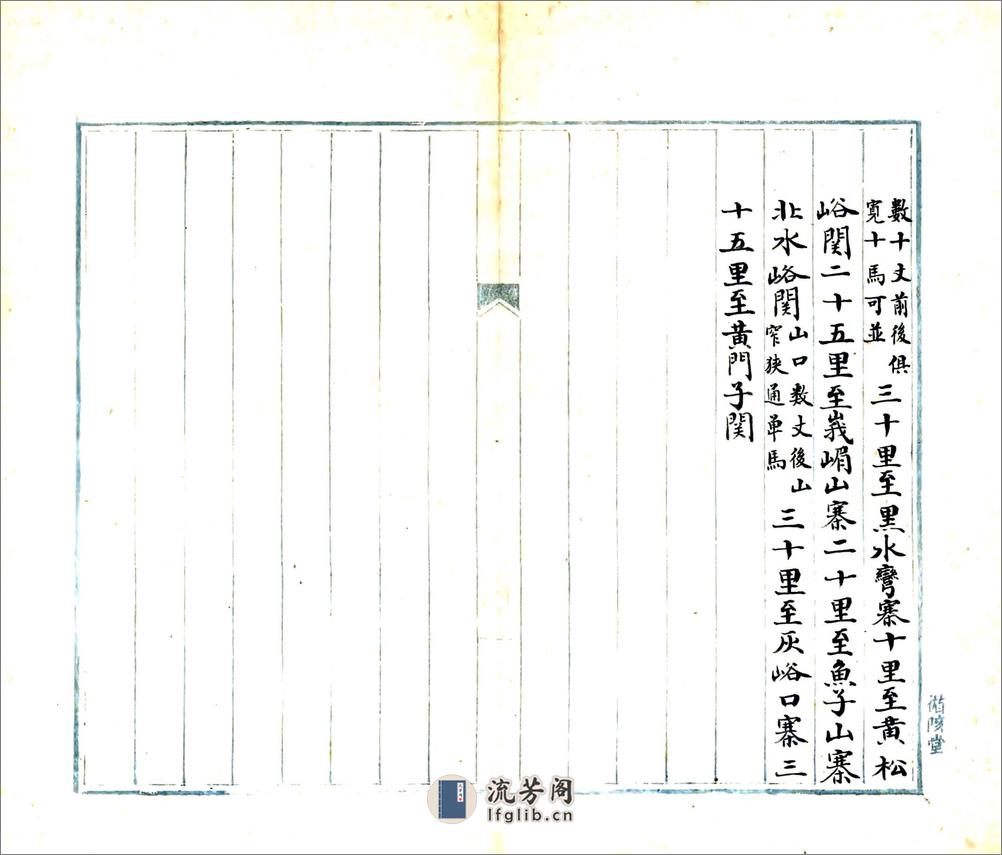 數十丈前後俱
寬十馬可並
三十里至黒水彎寨十里至黄松
峪関二十五里至峩嵋山寨二十里至魚子山寨
北水峪関
山口数丈後山
窄狹通单馬
三十里至灰峪口寨三
十五里至黄門子関
循陔堂
流芳阁
lfglib.cn